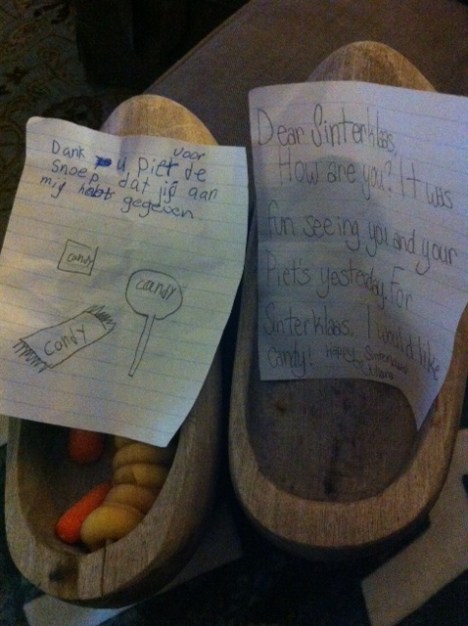 Dank u piet voor de
snoep dat jij aan
mij hebt gegeven
candy
candy
candy
Dear Sinterklaas,
How are you? It was
fun seeing you and your
Piet's yesterday. For
Sinterklaas, I would like
candy! Happy